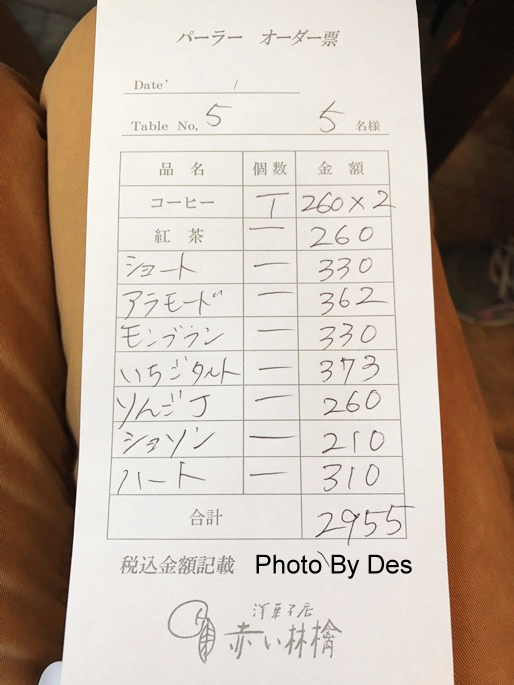 パーラー オーダー票
Date' /
Table No, 5 5 名様
品名 個数 金額
コーヒー T 260×2
紅茶 一 260
ショート 一 330
アラモード 一 362
モンブラン 一 330
いちごタルト 一 373
りんごJ 一 260
ショソン 一 210
ハート 一 310
合計 2955
税込金額記載 Photo By Des
洋菓子店
赤い林檎